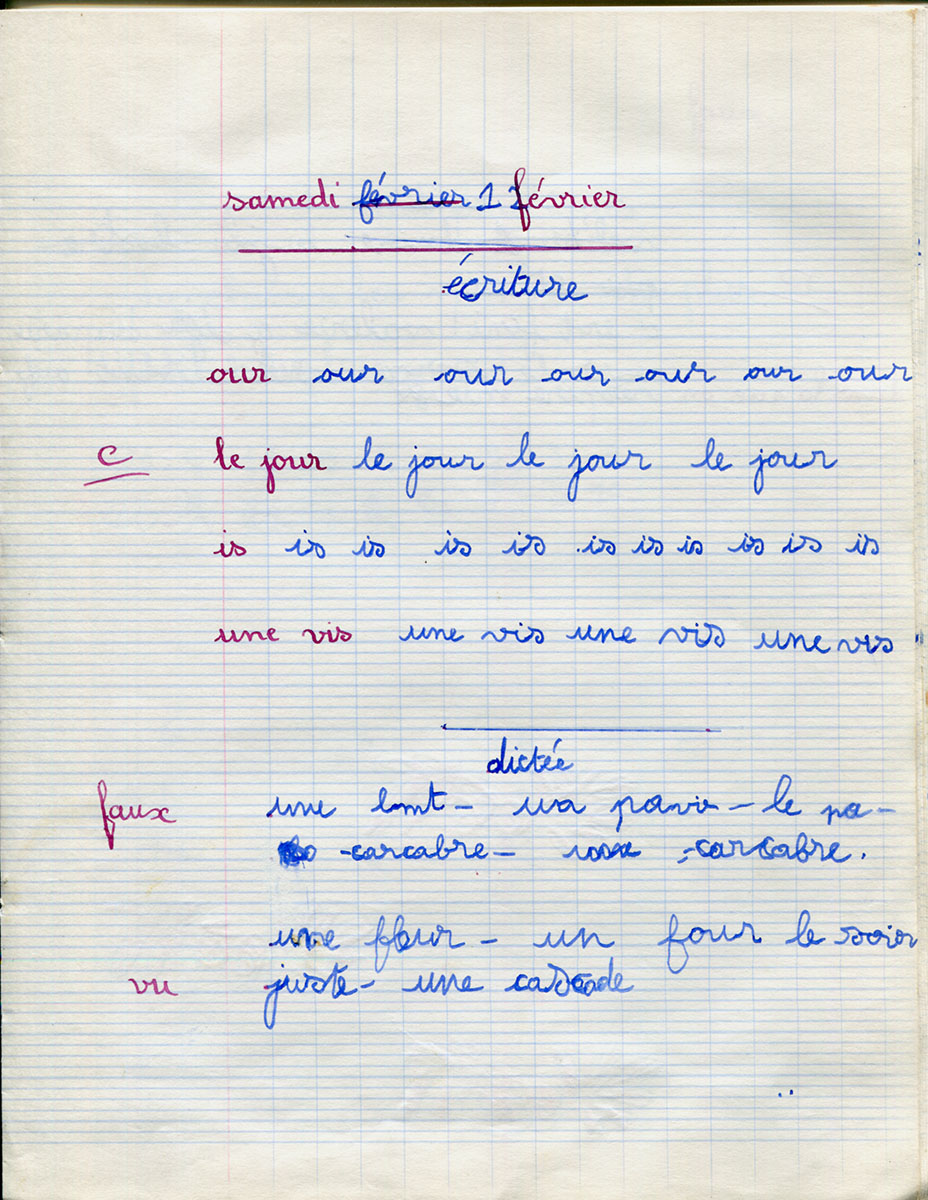 samedi février 11 février
écriture
our our our our our our our
C le jour le jour le jour le jour
is is is is is is is is is is is
une vis une vis une vis une vis
dictée
faux une lmt - ua pavie - le pa-
-carcabre - -carcabre.
une fleur - un four le soir
vu juste - une cascade